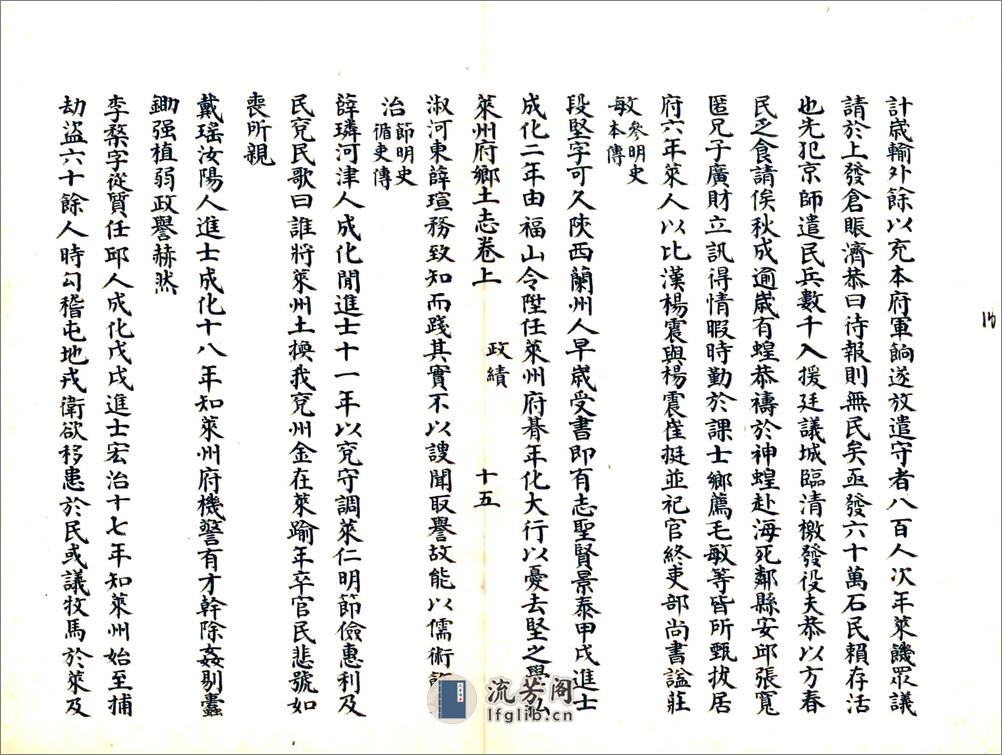 計歲輸外餘以充本府軍餉遂放遣守者八百人次年萊饑眾議
請於上發倉賑濟恭曰待報則無民矣亟發六十萬石民賴存活
也先犯京師遣民兵數千入援廷議城臨清檄發役夫恭以方春
民乏食請俟秋成逾歲有蝗恭禱於神蝗赴海死鄰縣安邱張寬
匿兄子廣財立訊得情暇時勤於課士鄉薦毛敏等皆所甄拔居
府六年萊人以比漢楊震與楊震崔挺並祀官終吏部尚書諡莊
敏參明史本傳
段堅字可久陝西蘭州人早歲受書即有志聖賢景泰甲戌進士
成化二年由福山令陞任萊州府朞年化大行以憂去堅之學私
萊州府鄉土志卷上 政績 十五
淑河東薛瑄務致知而踐其實不以謏聞取譽故能以儒術
治節明史循吏傳
薛璘河津人成化閒進士十一年以兗守調萊仁明節儉惠利及
民兗民歌曰誰將萊州土換我兗州金在萊踰年卒官民悲號如
喪所親
戴瑤汝陽人進士成化十八年知萊州府機警有才幹除姦剔蠹
鋤强植弱政譽赫然
李楘字從質任邱人成化戊戌進士宏治十七年知萊州始至捕
劫盜六十餘人時勾稽屯地戎衛欲移患於民或議牧馬於萊及
15
流芳阁
lfglib.cn